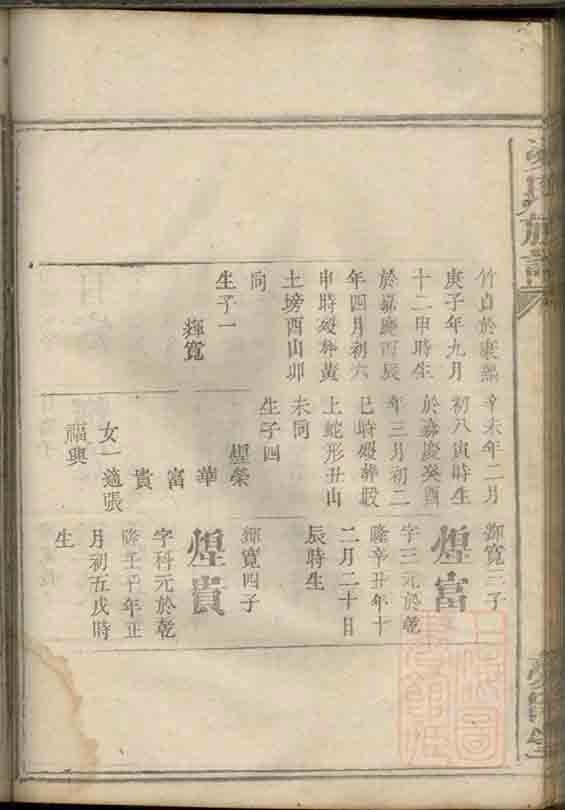 族譜
竹貞於康熙
庚子年九月
十二申時生
於嘉慶丙辰
年四月初六
申時歿葬黃
土塝酉山卯
向
生子一
輝寬
辛未年二月
初八寅時生
於嘉慶癸酉
年三月初二
巳時歿葬殿
上蛇形丑山
未向
生子四
煌榮
華
富
貴
女一適張
福興
輝寬三子
煌富
字三元於乾
隆辛丑年十
二月二十日
辰時生
輝寬四子
煌貴
字科元於乾
隆壬子年正
月初五戌時
生